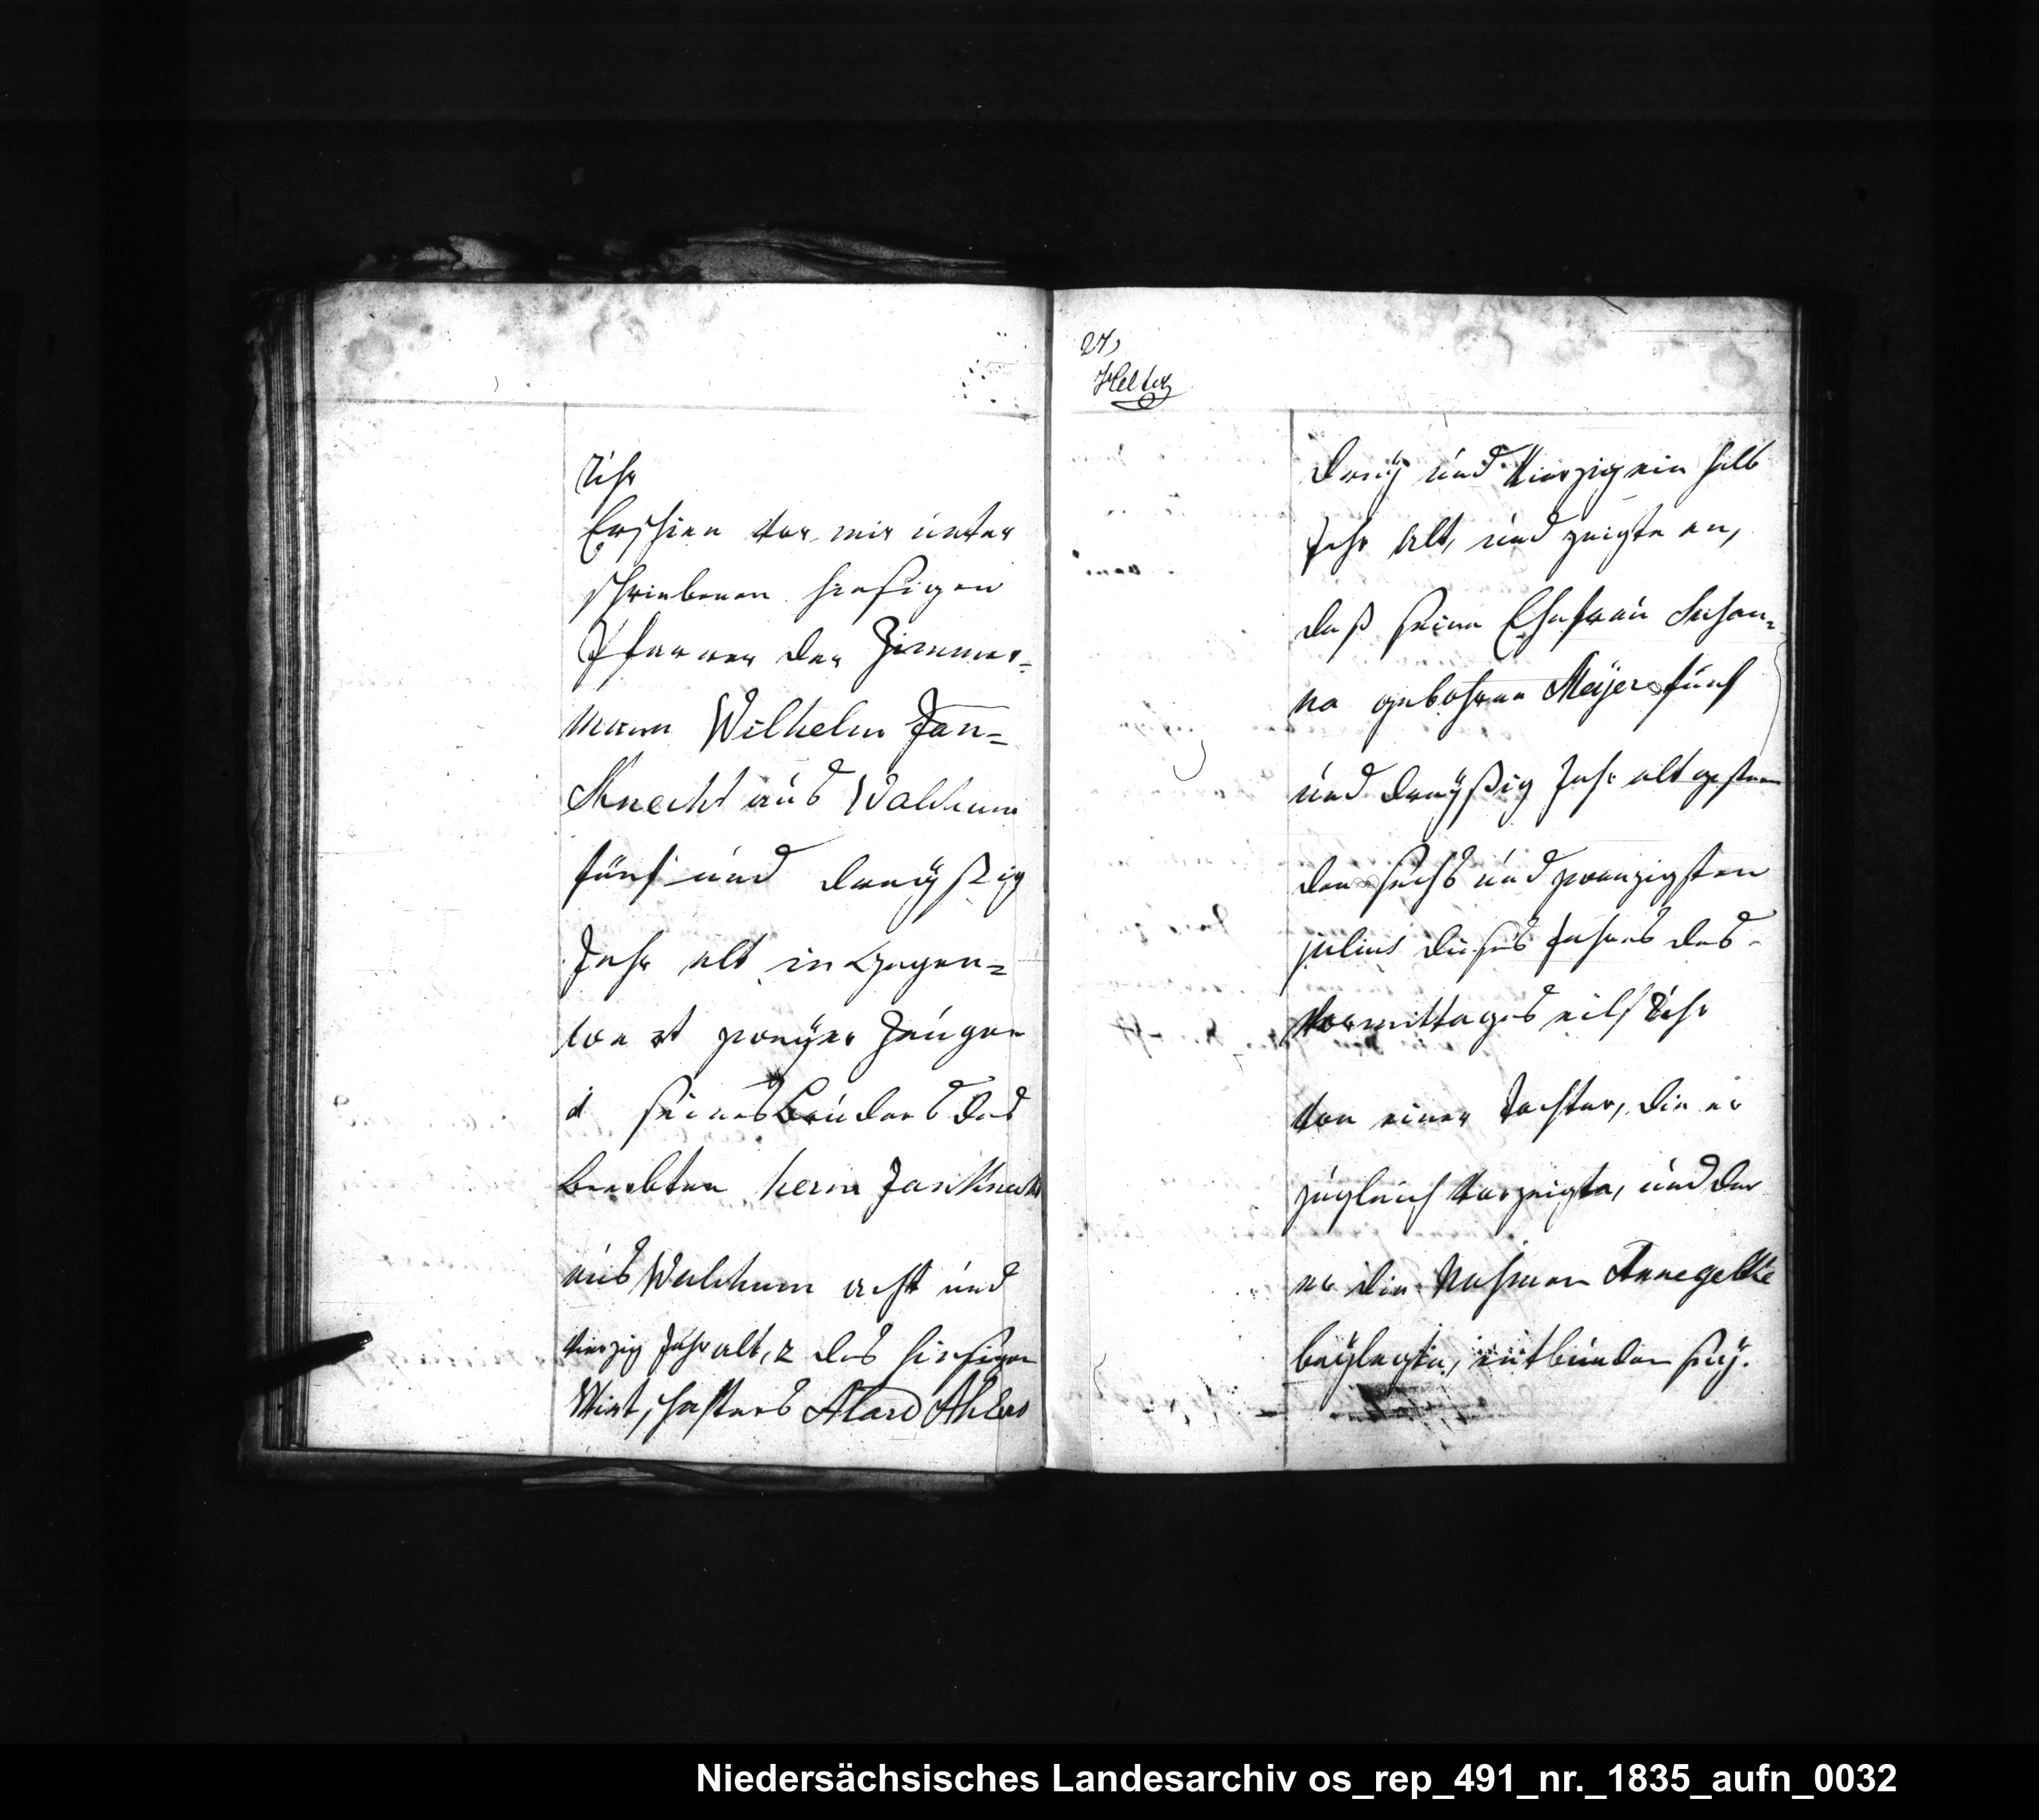 Uhr
Erschien vor mir unter
schriebenen hiesigen
Pfarrer der Zimmer-
mann Wilhelm Jan=
Knecht aus Walchum
fünf und dreyßig
Jahr alt in Gegen=
wart zweyer Zeugen
seines Bruders des
Beerbten herm Jan Knecht
aus Walchum acht und
vierzig Jahr alt, 2 des hiesigen
Wirtschafters Alard Ahlers
27,
drey und vierzig ein halb
Jahr alt, und zeigte an,
daß seine Ehefrau Susan=
na gebohrne Meÿer fünf
und dreyßig Jahr alt gestern
den sechs und zwanzigsten
julius dieses Jahres des
Vormittages eilf Uhr
von einer Tochter, die er
zugleich vorzeigte, und der
er die Nahmen Annegelke
beylegte, entbunden sey.
Niedersächsisches Landesarchiv os_rep_491_nr._1835_aufn_0032